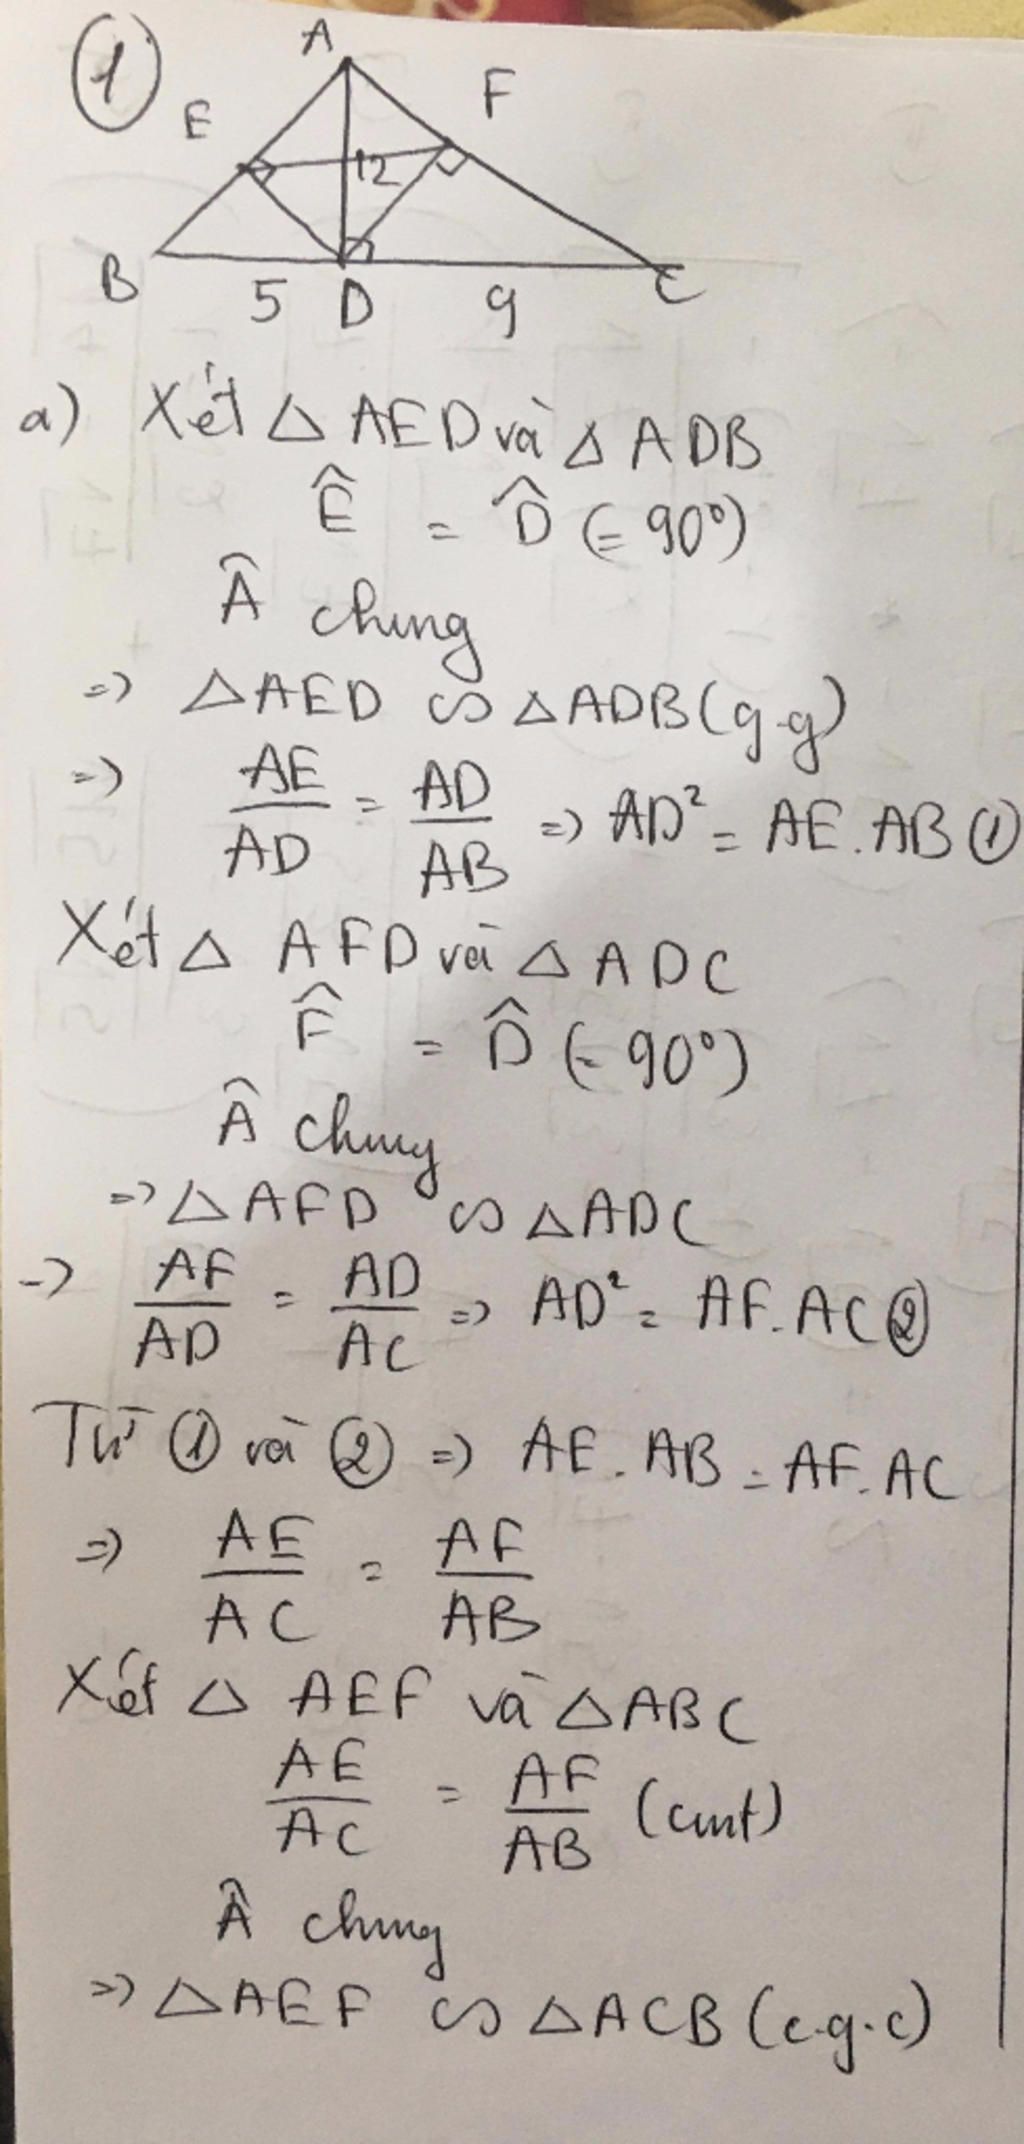 1
A
E
F
12
B
5 D 9 C
a) Xét △ AED và △ ADB
Ê = D̂ (= 90°)
Â chung
=> △AED ∽ △ADB (g.g)
=> AE/AD = AD/AB => AD² = AE.AB ①
Xét △ AFD và △ ADC
F̂ = D̂ (= 90°)
Â chung
=> △AFD ∽ △ADC
-> AF/AD = AD/AC => AD² = AF.AC ②
Từ ① và ② => AE.AB = AF.AC
=> AE/AC = AF/AB
Xét △ AEF và △ABC
AE/AC = AF/AB (cmt)
Â chung
=> △AEF ∽ △ACB (c.g.c)